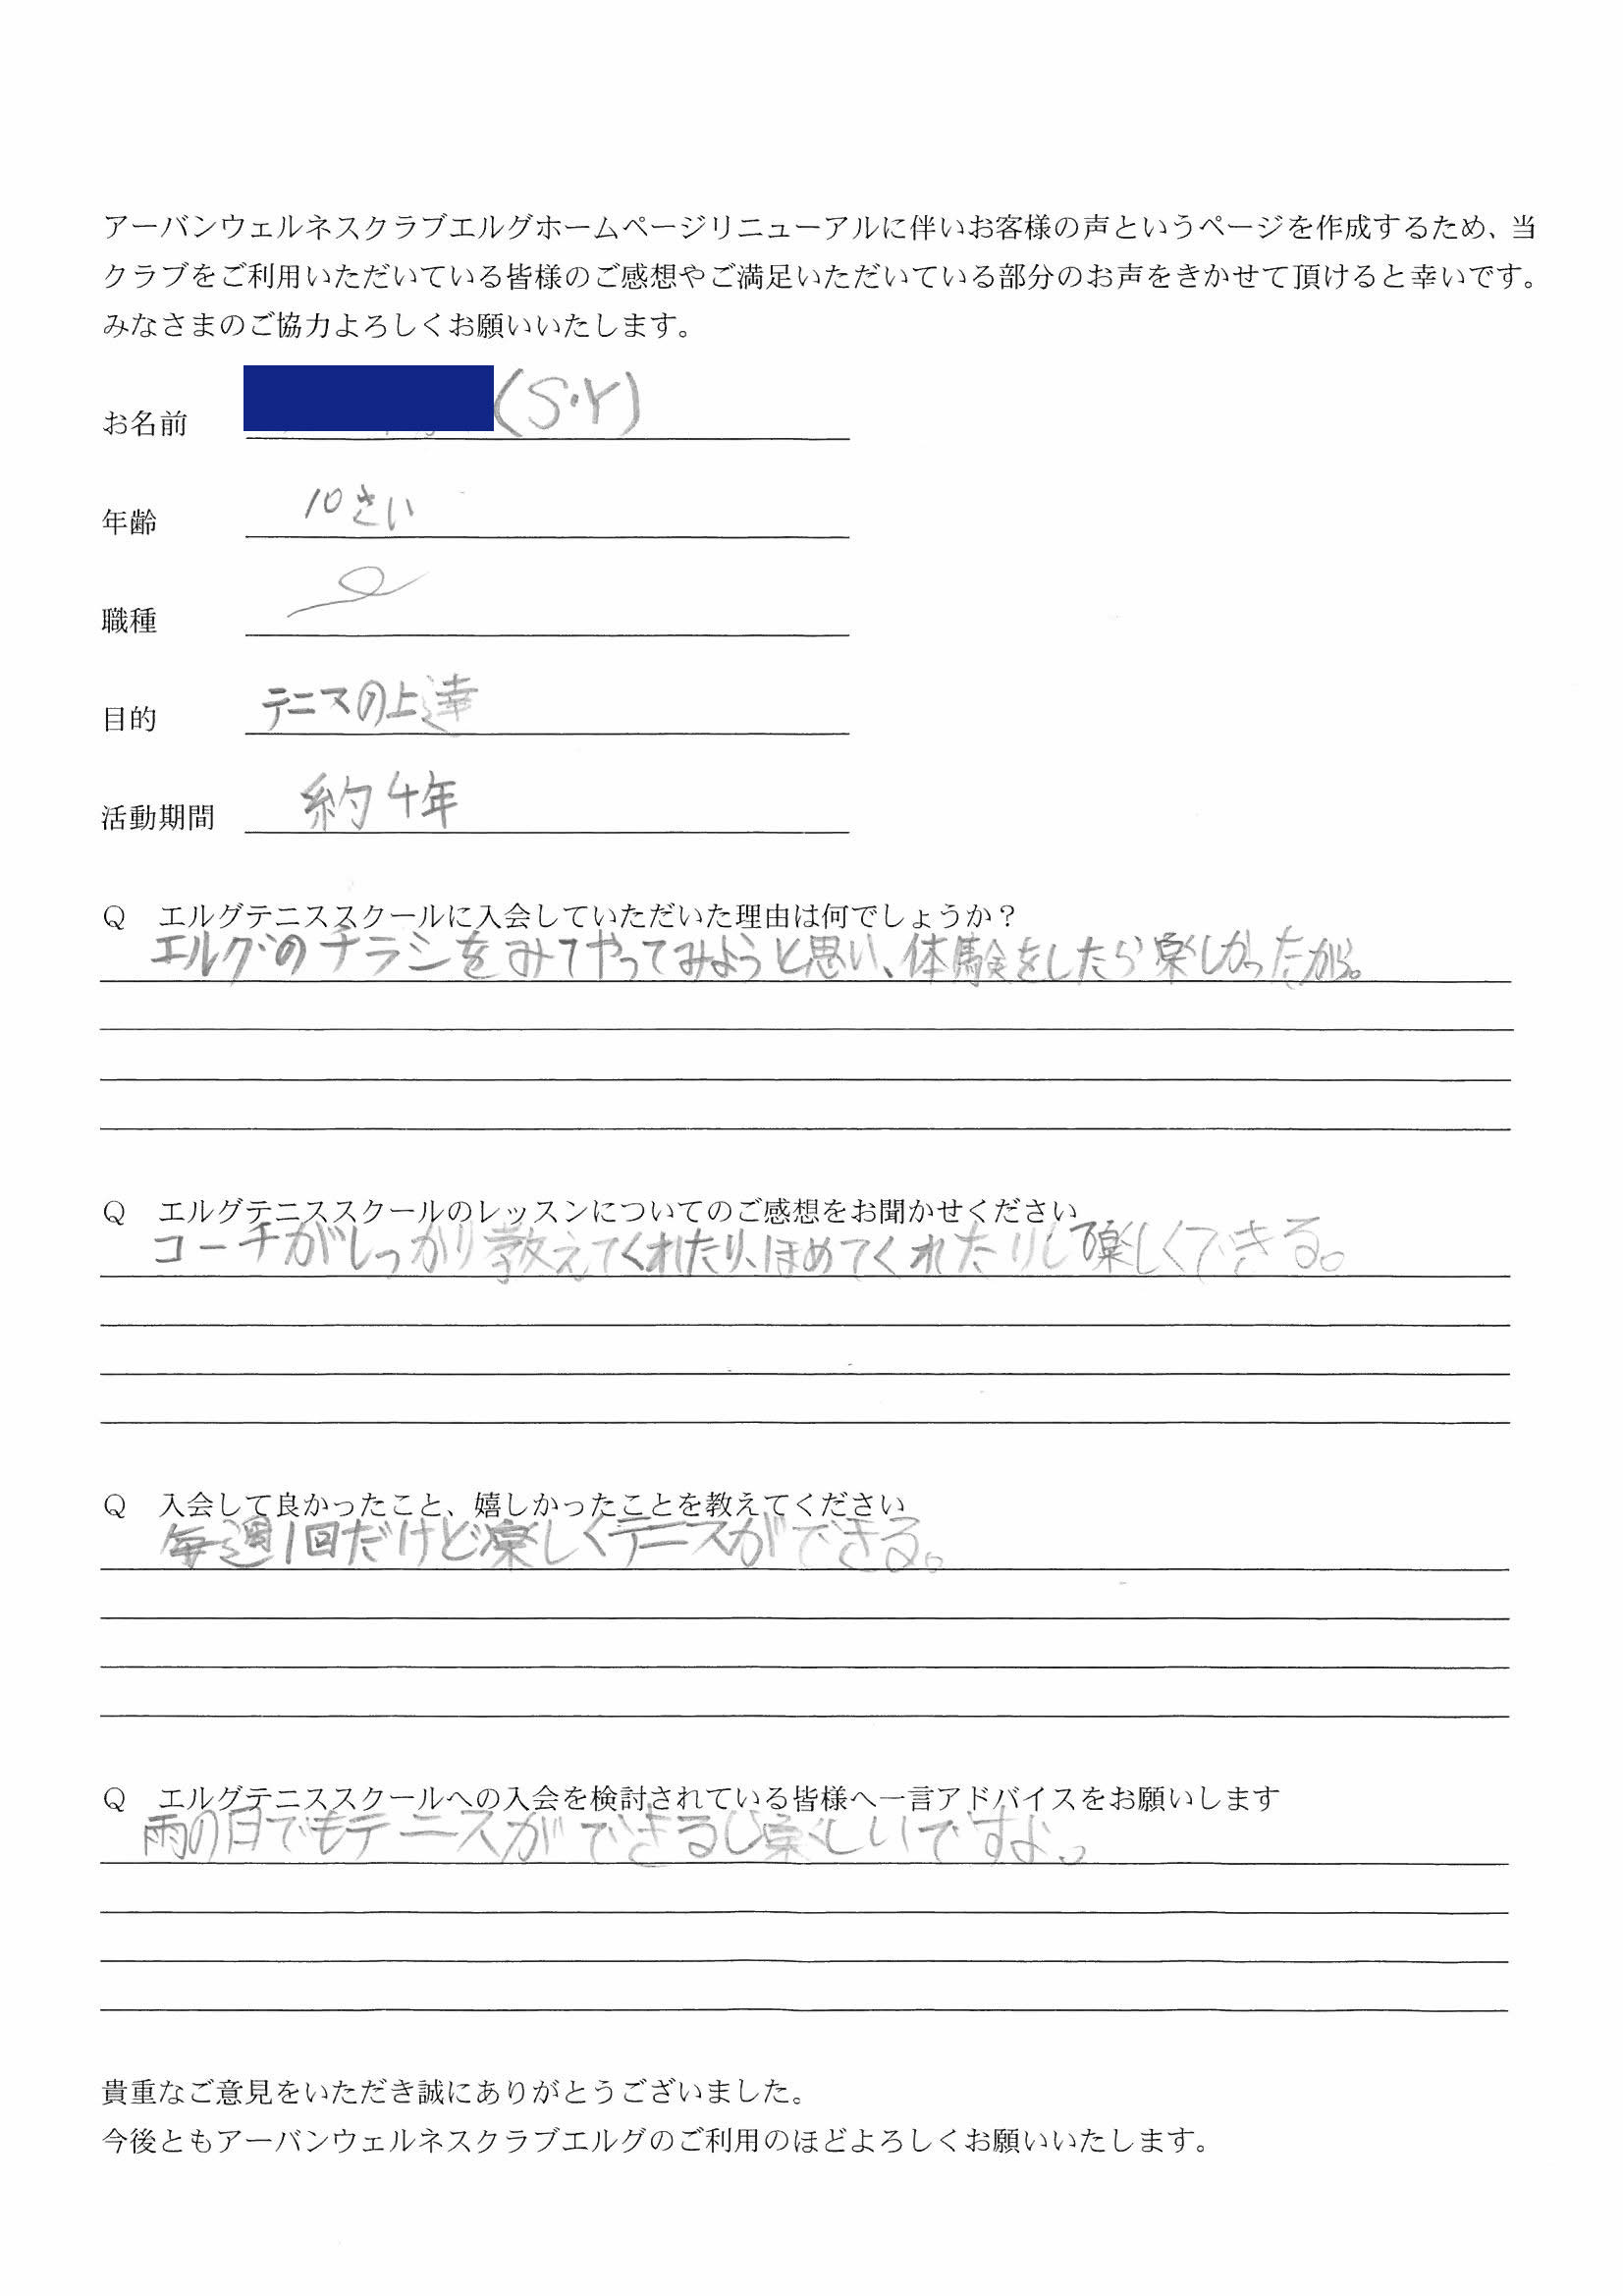 アーバンウェルネスクラブエルグホームページリニューアルに伴いお客様の声というページを作成するため、当
クラブをご利用いただいている皆様のご感想やご満足いただいている部分のお声をきかせて頂けると幸いです。
みなさまのご協力よろしくお願いいたします。
お名前 (S・Y)
年齢 10さい
職種
目的 テニスの上達
活動期間 約4年
Q エルグテニススクールに入会していただいた理由は何でしょうか？
エルグのチラシをみてやってみようと思い、体験をしたら楽しかったから。
Q エルグテニススクールのレッスンについてのご感想をお聞かせください
コーチがしっかり教えてくれたり、ほめてくれたりして楽しくできる。
Q 入会して良かったこと、嬉しかったことを教えてください
毎週1回だけど楽しくテニスができる。
Q エルグテニススクールへの入会を検討されている皆様へ一言アドバイスをお願いします
雨の日でもテニスができるし楽しいですよ。
貴重なご意見をいただき誠にありがとうございました。
今後ともアーバンウェルネスクラブエルグのご利用のほどよろしくお願いいたします。